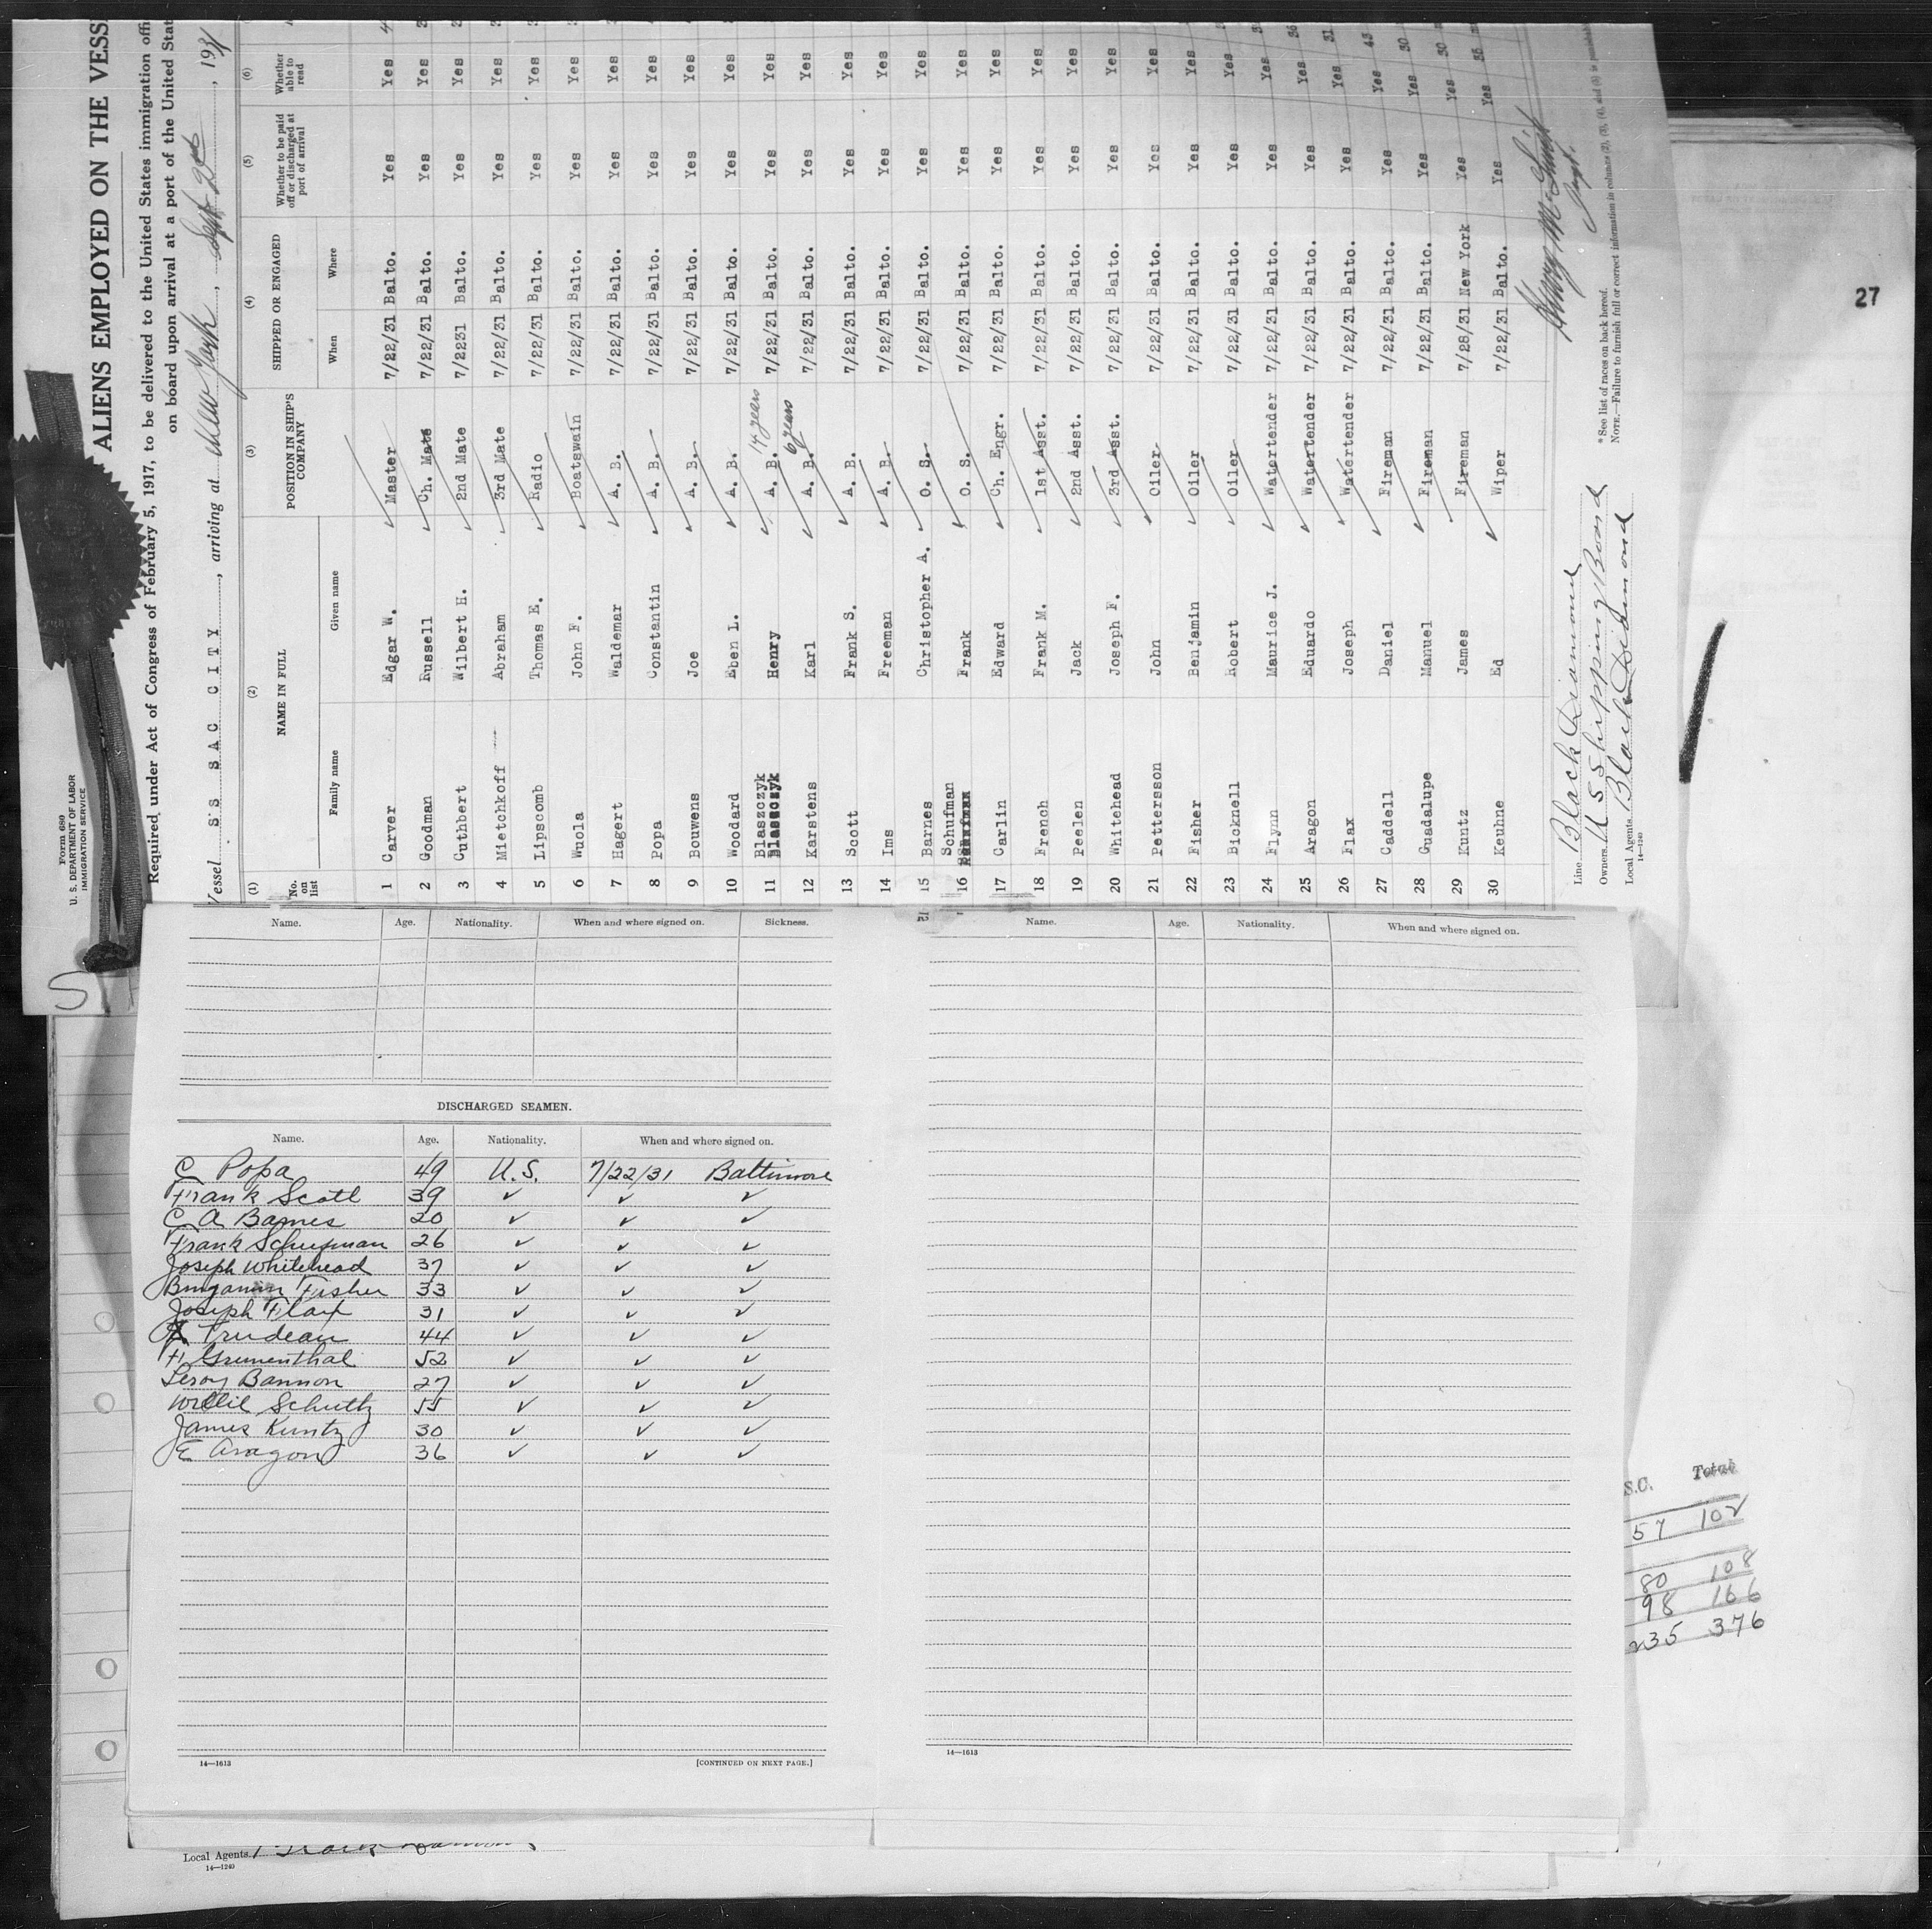 Form 680
U. S. DEPARTMENT OF LABOR
IMMIGRATION SERVICE
ALIENS EMPLOYED ON THE VESS
Required under Act of Congress of February 5, 1917, to be delivered to the United States immigration offi
on board upon arrival at a port of the United Stat
Vessel S S SAC CITY, arriving at New York, Sept 2nd, 1931
(1) (2) (3) (4) (5) (6)
No. on list NAME IN FULL POSITION IN SHIP'S COMPANY SHIPPED OR ENGAGED Whether to be paid off or discharged at port of arrival Whether able to read
Family name Given name When Where
1 Carver Edgar W. Master 7/22/31 Balto. Yes Yes
2 Goodman Russell Ch. Mate 7/22/31 Balto. Yes Yes
3 Cuthbert Wilbert H. 2nd Mate 7/2231 Balto. Yes Yes
4 Mietchkoff Abraham 3rd Mate 7/22/31 Balto. Yes Yes
5 Lipscomb Thomas E. Radio 7/22/31 Balto. Yes Yes
6 Wuola John F. Boatswain 7/22/31 Balto. Yes Yes
7 Hagert Waldemar A. B. 7/22/31 Balto. Yes Yes
8 Popa Constantin A. B. 7/22/31 Balto. Yes Yes
9 Bouwens Joe A. B. 7/22/31 Balto. Yes Yes
10 Woodard Eben L. A. B. 7/22/31 Balto. Yes Yes
Blaszczyk
11 Blaszczyk Henry A. B. 14 years 7/22/31 Balto. Yes Yes
12 Karstens Karl A. B. 6 years 7/22/31 Balto. Yes Yes
13 Scott Frank S. A. B. 7/22/31 Balto. Yes Yes
14 Ims Freeman A. B. 7/22/31 Balto. Yes Yes
15 Barnes Christopher A. O. S. 7/22/31 Balto. Yes Yes
Schufman
16 Frank O. S. 7/22/31 Balto. Yes Yes
17 Carlin Edward Ch. Engr. 7/22/31 Balto. Yes Yes
18 French Frank M. 1st Asst. 7/22/31 Balto. Yes Yes
19 Peelen Jack 2nd Asst. 7/22/31 Balto. Yes Yes
20 Whitehead Joseph F. 3rd Asst. 7/22/31 Balto. Yes Yes
21 Pettersson John Oiler 7/22/31 Balto. Yes Yes
22 Fisher Benjamin Oiler 7/22/31 Balto. Yes Yes
23 Bicknell Robert Oiler 7/22/31 Balto. Yes Yes
24 Flynn Maurice J. Watertender 7/22/31 Balto. Yes Yes
25 Aragon Eduardo Watertender 7/22/31 Balto. Yes Yes 36
26 Flax Joseph Watertender 7/22/31 Balto. Yes Yes 31
27 Caddell Daniel Fireman 7/22/31 Balto. Yes Yes 43
28 Guadalupe Manuel Fireman 7/22/31 Balto. Yes Yes 30
29 Kuntz James Fireman 7/28/31 New York Yes Yes 30
30 Keuhne Ed Wiper 7/22/31 Balto. Yes Yes 35
Line Black Diamond
Owners U. S Shipping Board
Local Agents Black Diamond
14—1240
* See list of races on back hereof.
NOTE.—Failure to furnish full or correct information in columns (2), (3), (4), and (5) is punishab
27
Name. Age. Nationality. When and where signed on. Sickness.
DISCHARGED SEAMEN.
Name. Age. Nationality. When and where signed on.
C Popa 49 U.S. 7/22/31 Baltimore
Frank Scott 39 ✓ ✓ ✓
C A Barnes 20 ✓ ✓ ✓
Frank Schufman 26 ✓ ✓ ✓
Joseph Whitehead 37 ✓ ✓ ✓
Benjamin Fisher 33 ✓ ✓ ✓
Joseph Flax 31 ✓ ✓ ✓
Trudeau 44 ✓ ✓ ✓
H Grumenthal 52 ✓ ✓ ✓
Leroy Bannon 27 ✓ ✓ ✓
Willie Schultz 55 ✓ ✓ ✓
James Kuntz 30 ✓ ✓ ✓
E Aragon 36 ✓ ✓ ✓
14—1613 [CONTINUED ON NEXT PAGE.]
Name. Age. Nationality. When and where signed on.
14—1613
S.C. Total
57 102
80 108
98 166
235 376
Local Agents
14—1240